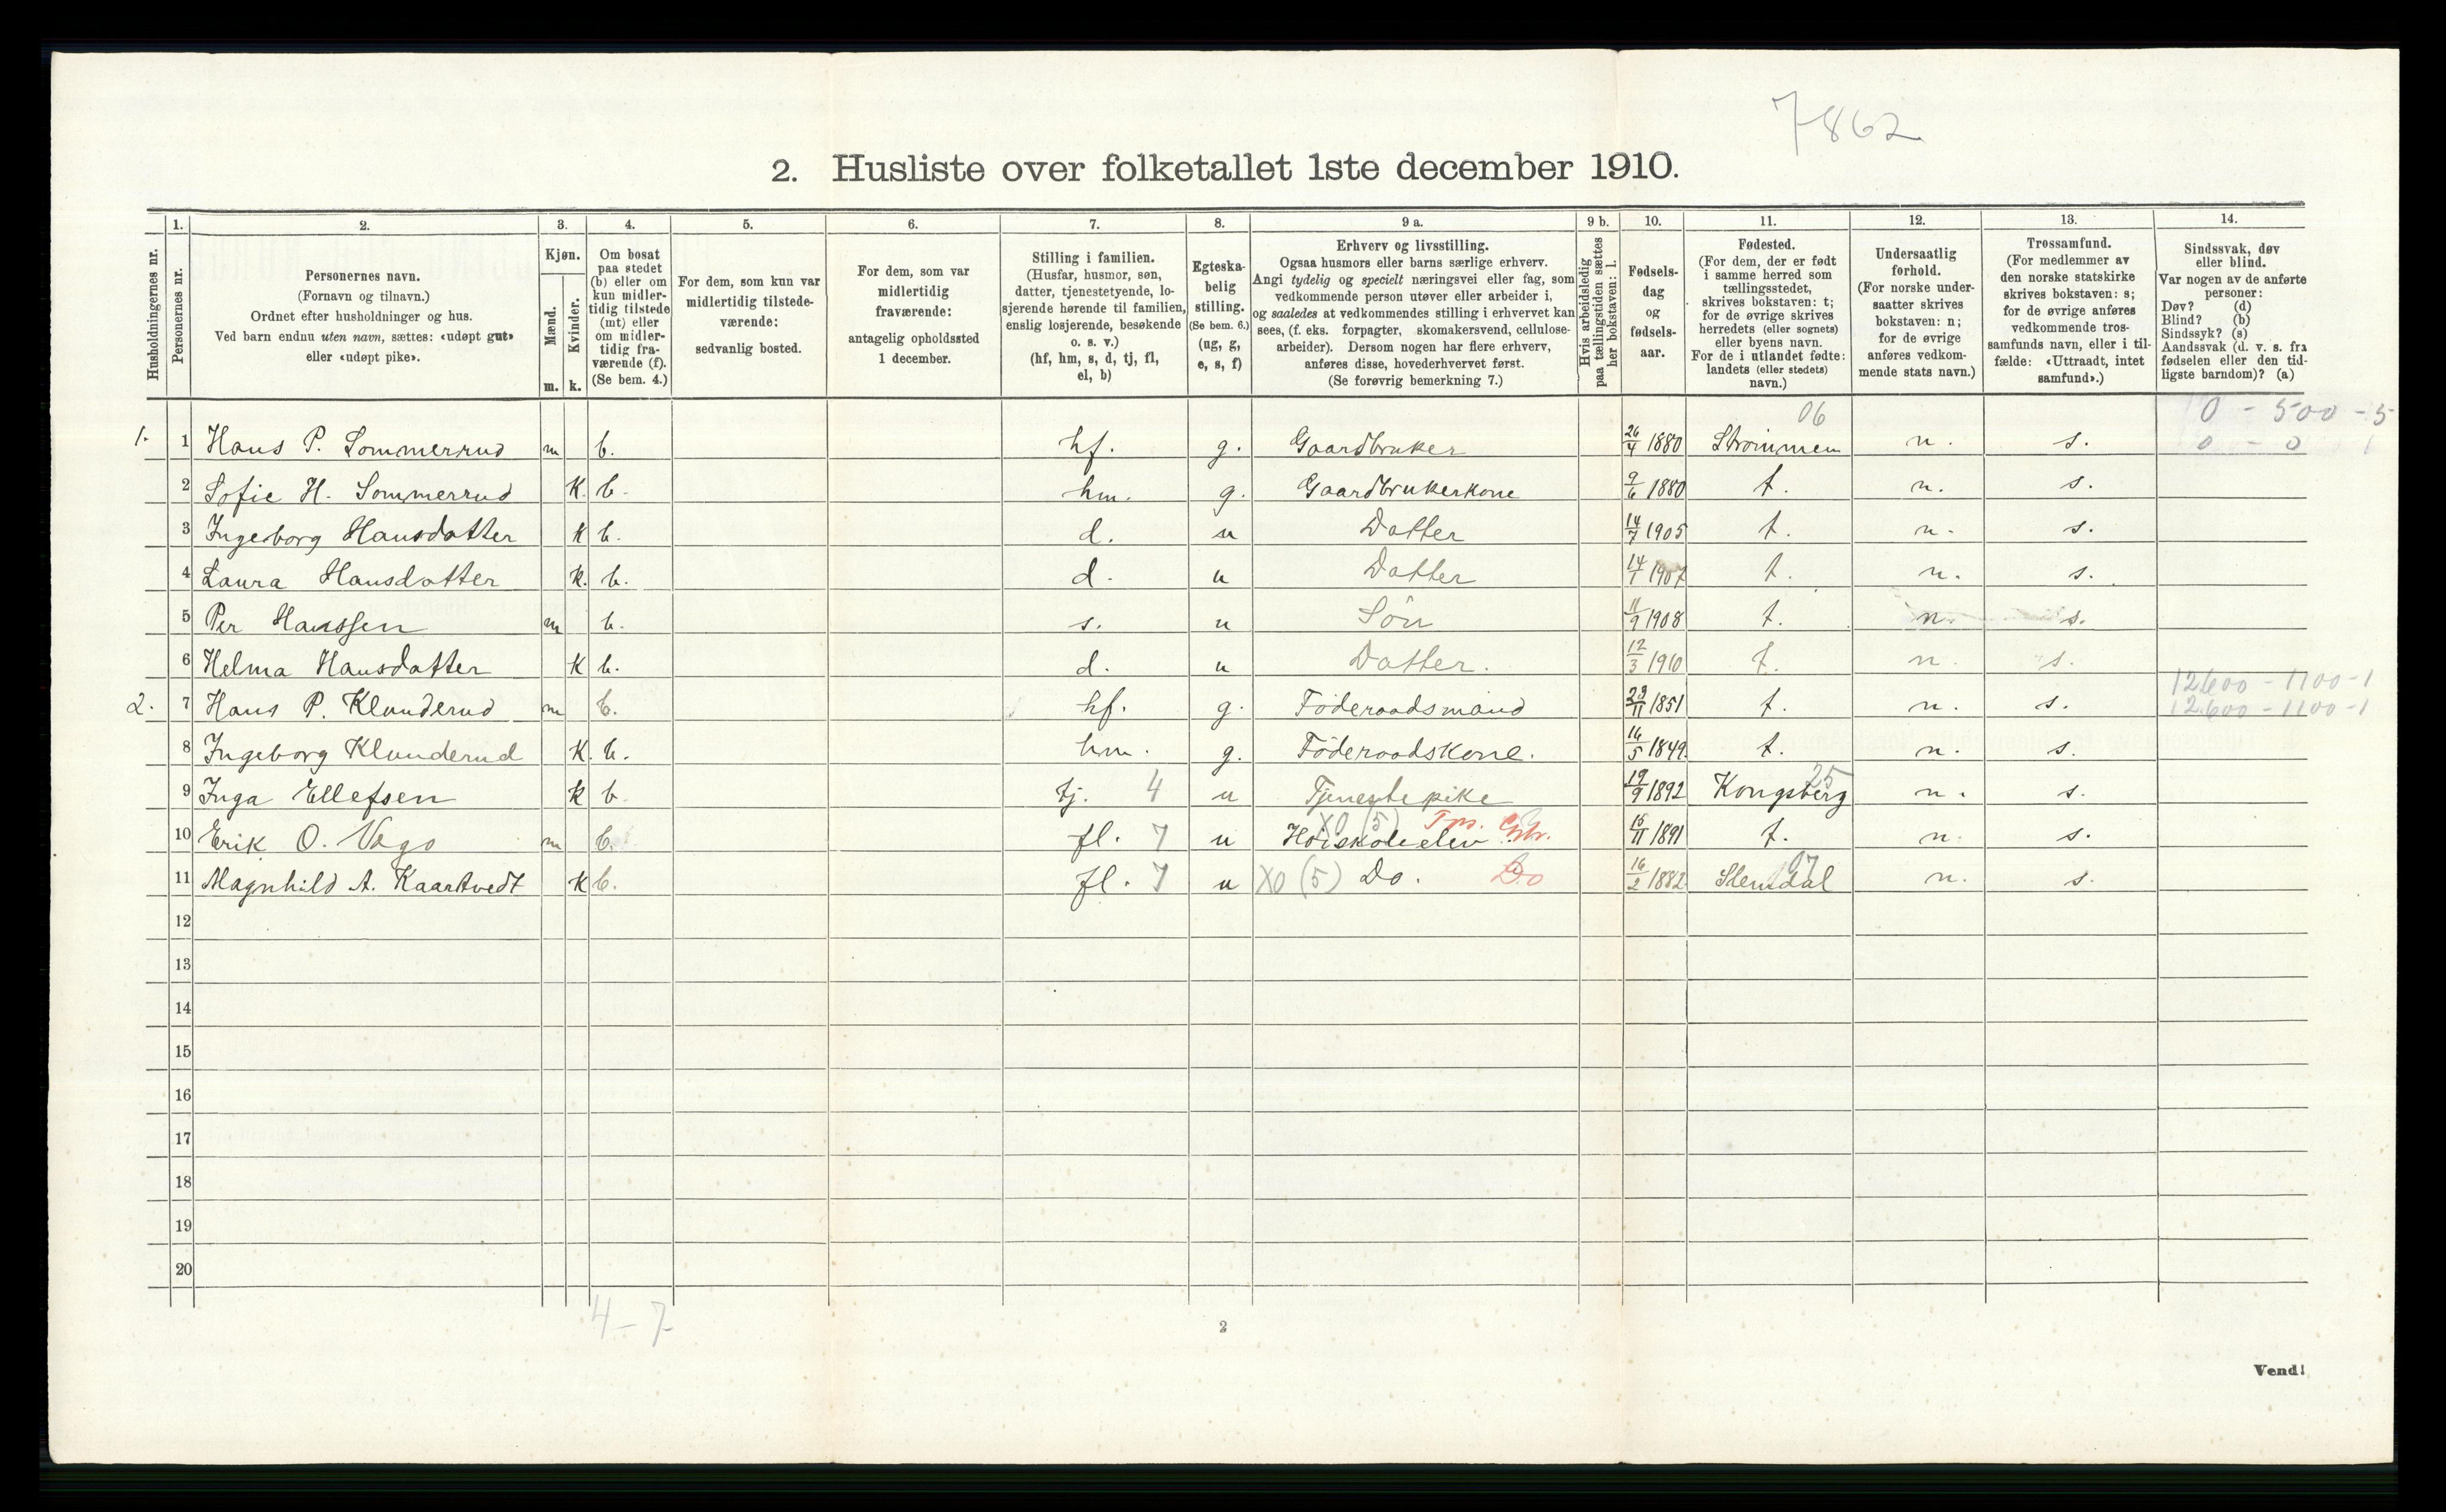 7862
2. Husliste over folketallet 1ste december 1910.
Husholdningernes nr.
1. Personernes nr.
2. Personernes navn.
(Fornavn og tilnavn.)
Ordnet efter husholdninger og hus.
Ved barn endnu uten navn, sættes: «udøpt gut»
eller «udøpt pike».
3. Kjøn.
Mænd. m.
Kvinder. k.
4. Om bosat
paa stedet
(b) eller om
kun midler-
tidig tilstede
(mt) eller
om midler-
tidig fra-
værende (f).
(Se bem. 4.)
5. For dem, som kun var
midlertidig tilstede-
værende:
sedvanlig bosted.
6. For dem, som var
midlertidig
fraværende:
antagelig opholdssted
1 december.
7. Stilling i familien.
(Husfar, husmor, søn,
datter, tjenestetyende, lo-
sjerende hørende til familien,
enslig losjerende, besøkende
o. s. v.)
(hf, hm, s, d, tj, fl,
el, b)
8. Egteska-
belig
stilling.
(Se bem. 6.)
(ug, g,
e, s, f)
9 a. Erhverv og livsstilling.
Ogsaa husmors eller barns særlige erhverv.
Angi tydelig og specielt næringsvei eller fag, som
vedkommende person utøver eller arbeider i,
og saaledes at vedkommendes stilling i erhvervet kan
sees, (f. eks. forpagter, skomakersvend, cellulose-
arbeider). Dersom nogen har flere erhverv,
anføres disse, hovederhvervet først.
(Se forøvrig bemerkning 7.)
9 b. Hvis arbeidsledig
paa tællingstiden sættes
her bokstaven: l.
10. Fødsels-
dag
og
fødsels-
aar.
11. Fødested.
(For dem, der er født
i samme herred som
tællingsstedet,
skrives bokstaven: t;
for de øvrige skrives
herredets (eller sognets)
eller byens navn.
For de i utlandet fødte:
landets (eller stedets)
navn.)
12. Undersaatlig
forhold.
(For norske under-
saatter skrives
bokstaven: n;
for de øvrige
anføres vedkom-
mende stats navn.)
13. Trossamfund.
(For medlemmer av
den norske statskirke
skrives bokstaven: s;
for de øvrige anføres
vedkommende tros-
samfunds navn, eller i til-
fælde: «Uttraadt, intet
samfund».)
14. Sindssvak, døv
eller blind.
Var nogen av de anførte
personer:
Døv? (d)
Blind? (b)
Sindssyk? (s)
Aandssvak (d. v. s. fra
fødselen eller den tid-
ligste barndom)? (a)
06 0 - 500 - 5
1. 1 Hans P. Sommerrud m b. hf. g. Gaardbruker 26/4 1880 Strømmen n. s. 0 - 0 1
2 Sofie H. Sommerrud K b. hm. g. Gaardbrukerkone 9/6 1880 t. n. s.
3 Ingeborg Hansdatter K b. d. u Datter 14/7 1905 t. n. s.
4 Laura Hansdatter K. b. d. u Datter 14/1 1907 t. n. s.
5 Per Hanssen m b. s. u Sön 11/9 1908 t. n. s.
6 Helma Hansdatter K b. d. u Datter. 12/3 1910 t. n. s.
12600 - 1100 - 1
2. 7 Hans P. Klunderud m b. hf. g. Föderaadsmand 23/11 1851 t. n. s. 12600 - 1100 - 1
8 Ingeborg Klunderud K. b. hm. g. Föderaadskone. 16/5 1849. t. n. s.
25
9 Inga Ellefsen K b tj. 4 u Tjenestepike 19/9 1892 Kongsberg n. s.
X0 (5)
10 Erik O. Vago m b. fl. 7 u Höiskoleelev 15/11 1891 t. n. s.
07
11 Magnhild A. Kaartvedt K b. fl. 7 u X0 (5) Do. Do 16/2 1882 Slemdal n. s.
12
13
14
15
16
17
18
19
20
4 - 7
2
Vend!